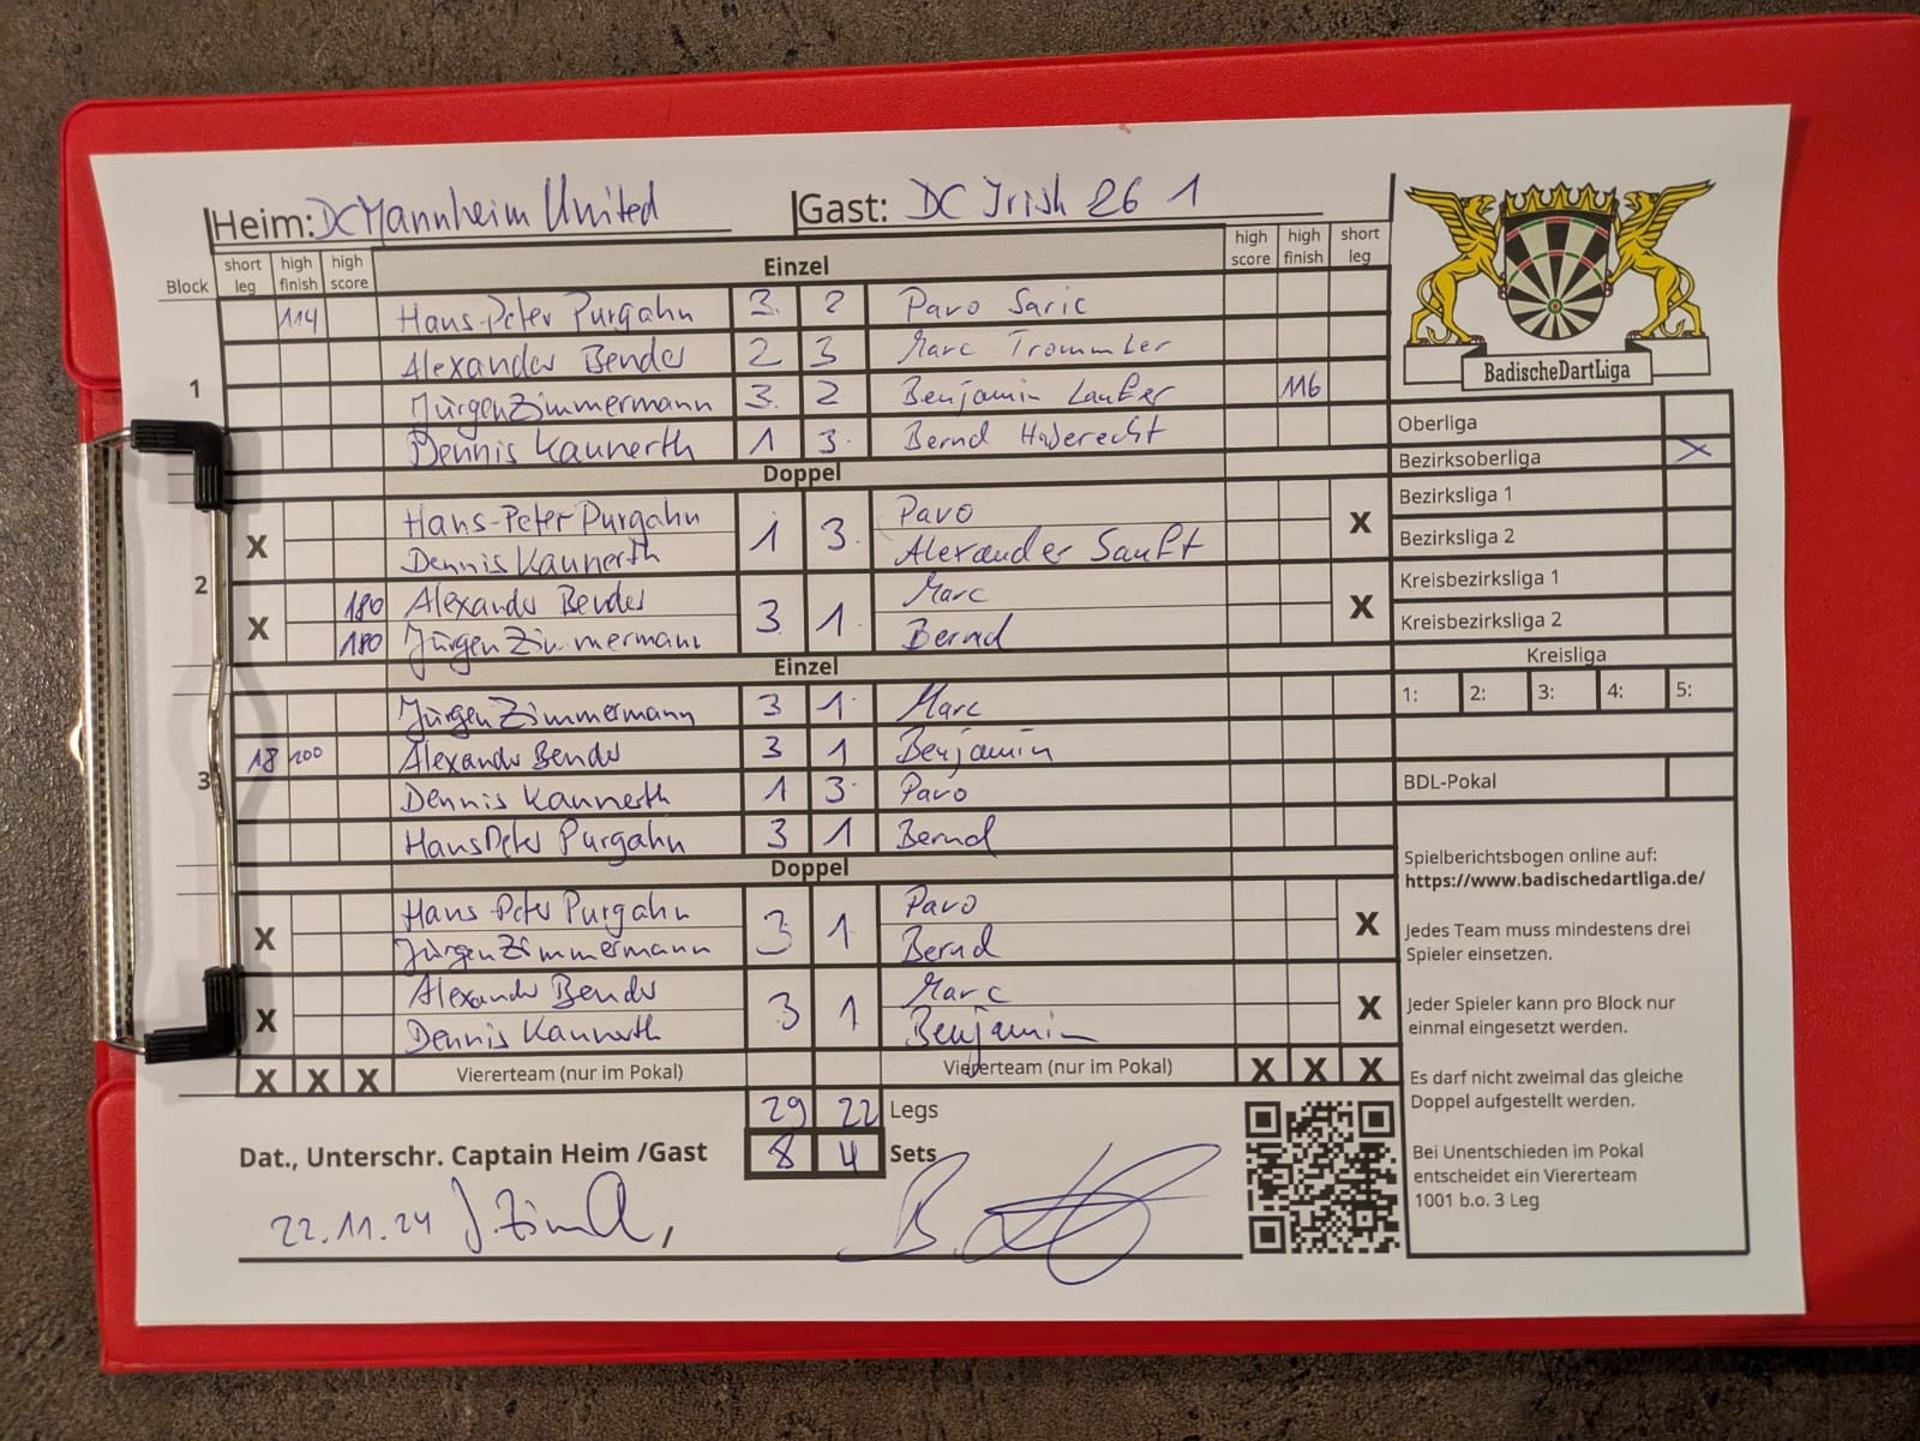 Heim: DC Mannheim United Gast: DC Irish 26 1
Block short leg high finish high score Einzel high score high finish short leg
114 Hans-Peter Purgahn 3 2 Pavo Saric
Alexander Bender 2 3 Marc Trommler
1 Jürgen Zimmermann 3 2 Benjamin 116
Dennis Kaunerth 1 3 Bernd Haderecht
Doppel
Hans-Peter Purgahn Pavo
X 1 3 X
Dennis Kaunerth Alexander Sanft
2
180 Alexander Bender Marc
X 3 1 X
180 Jürgen Zimmermann Bernd
Einzel
Jürgen Zimmermann 3 1 Marc
18 100 Alexander Bender 3 1 Benjamin
3 Dennis Kaunerth 1 3 Pavo
Hans Peter Purgahn 3 1 Bernd
Doppel
Hans Peter Purgahn Pavo
X 3 1 X
Jürgen Zimmermann Bernd
Alexander Bender Marc
X 3 1 X
Dennis Kaunerth Benjamin
X X X Viererteam (nur im Pokal) Viererteam (nur im Pokal) X X X
29 22 Legs
Dat., Unterschr. Captain Heim /Gast 8 4 Sets
22.11.24
BadischeDartLiga
Oberliga
Bezirksoberliga X
Bezirksliga 1
Bezirksliga 2
Kreisbezirksliga 1
Kreisbezirksliga 2
Kreisliga
1: 2: 3: 4: 5:
BDL-Pokal
Spielberichtsbogen online auf:
https://www.badischedartliga.de/
Jedes Team muss mindestens drei
Spieler einsetzen.
Jeder Spieler kann pro Block nur
einmal eingesetzt werden.
Es darf nicht zweimal das gleiche
Doppel aufgestellt werden.
Bei Unentschieden im Pokal
entscheidet ein Viererteam
1001 b.o. 3 Leg